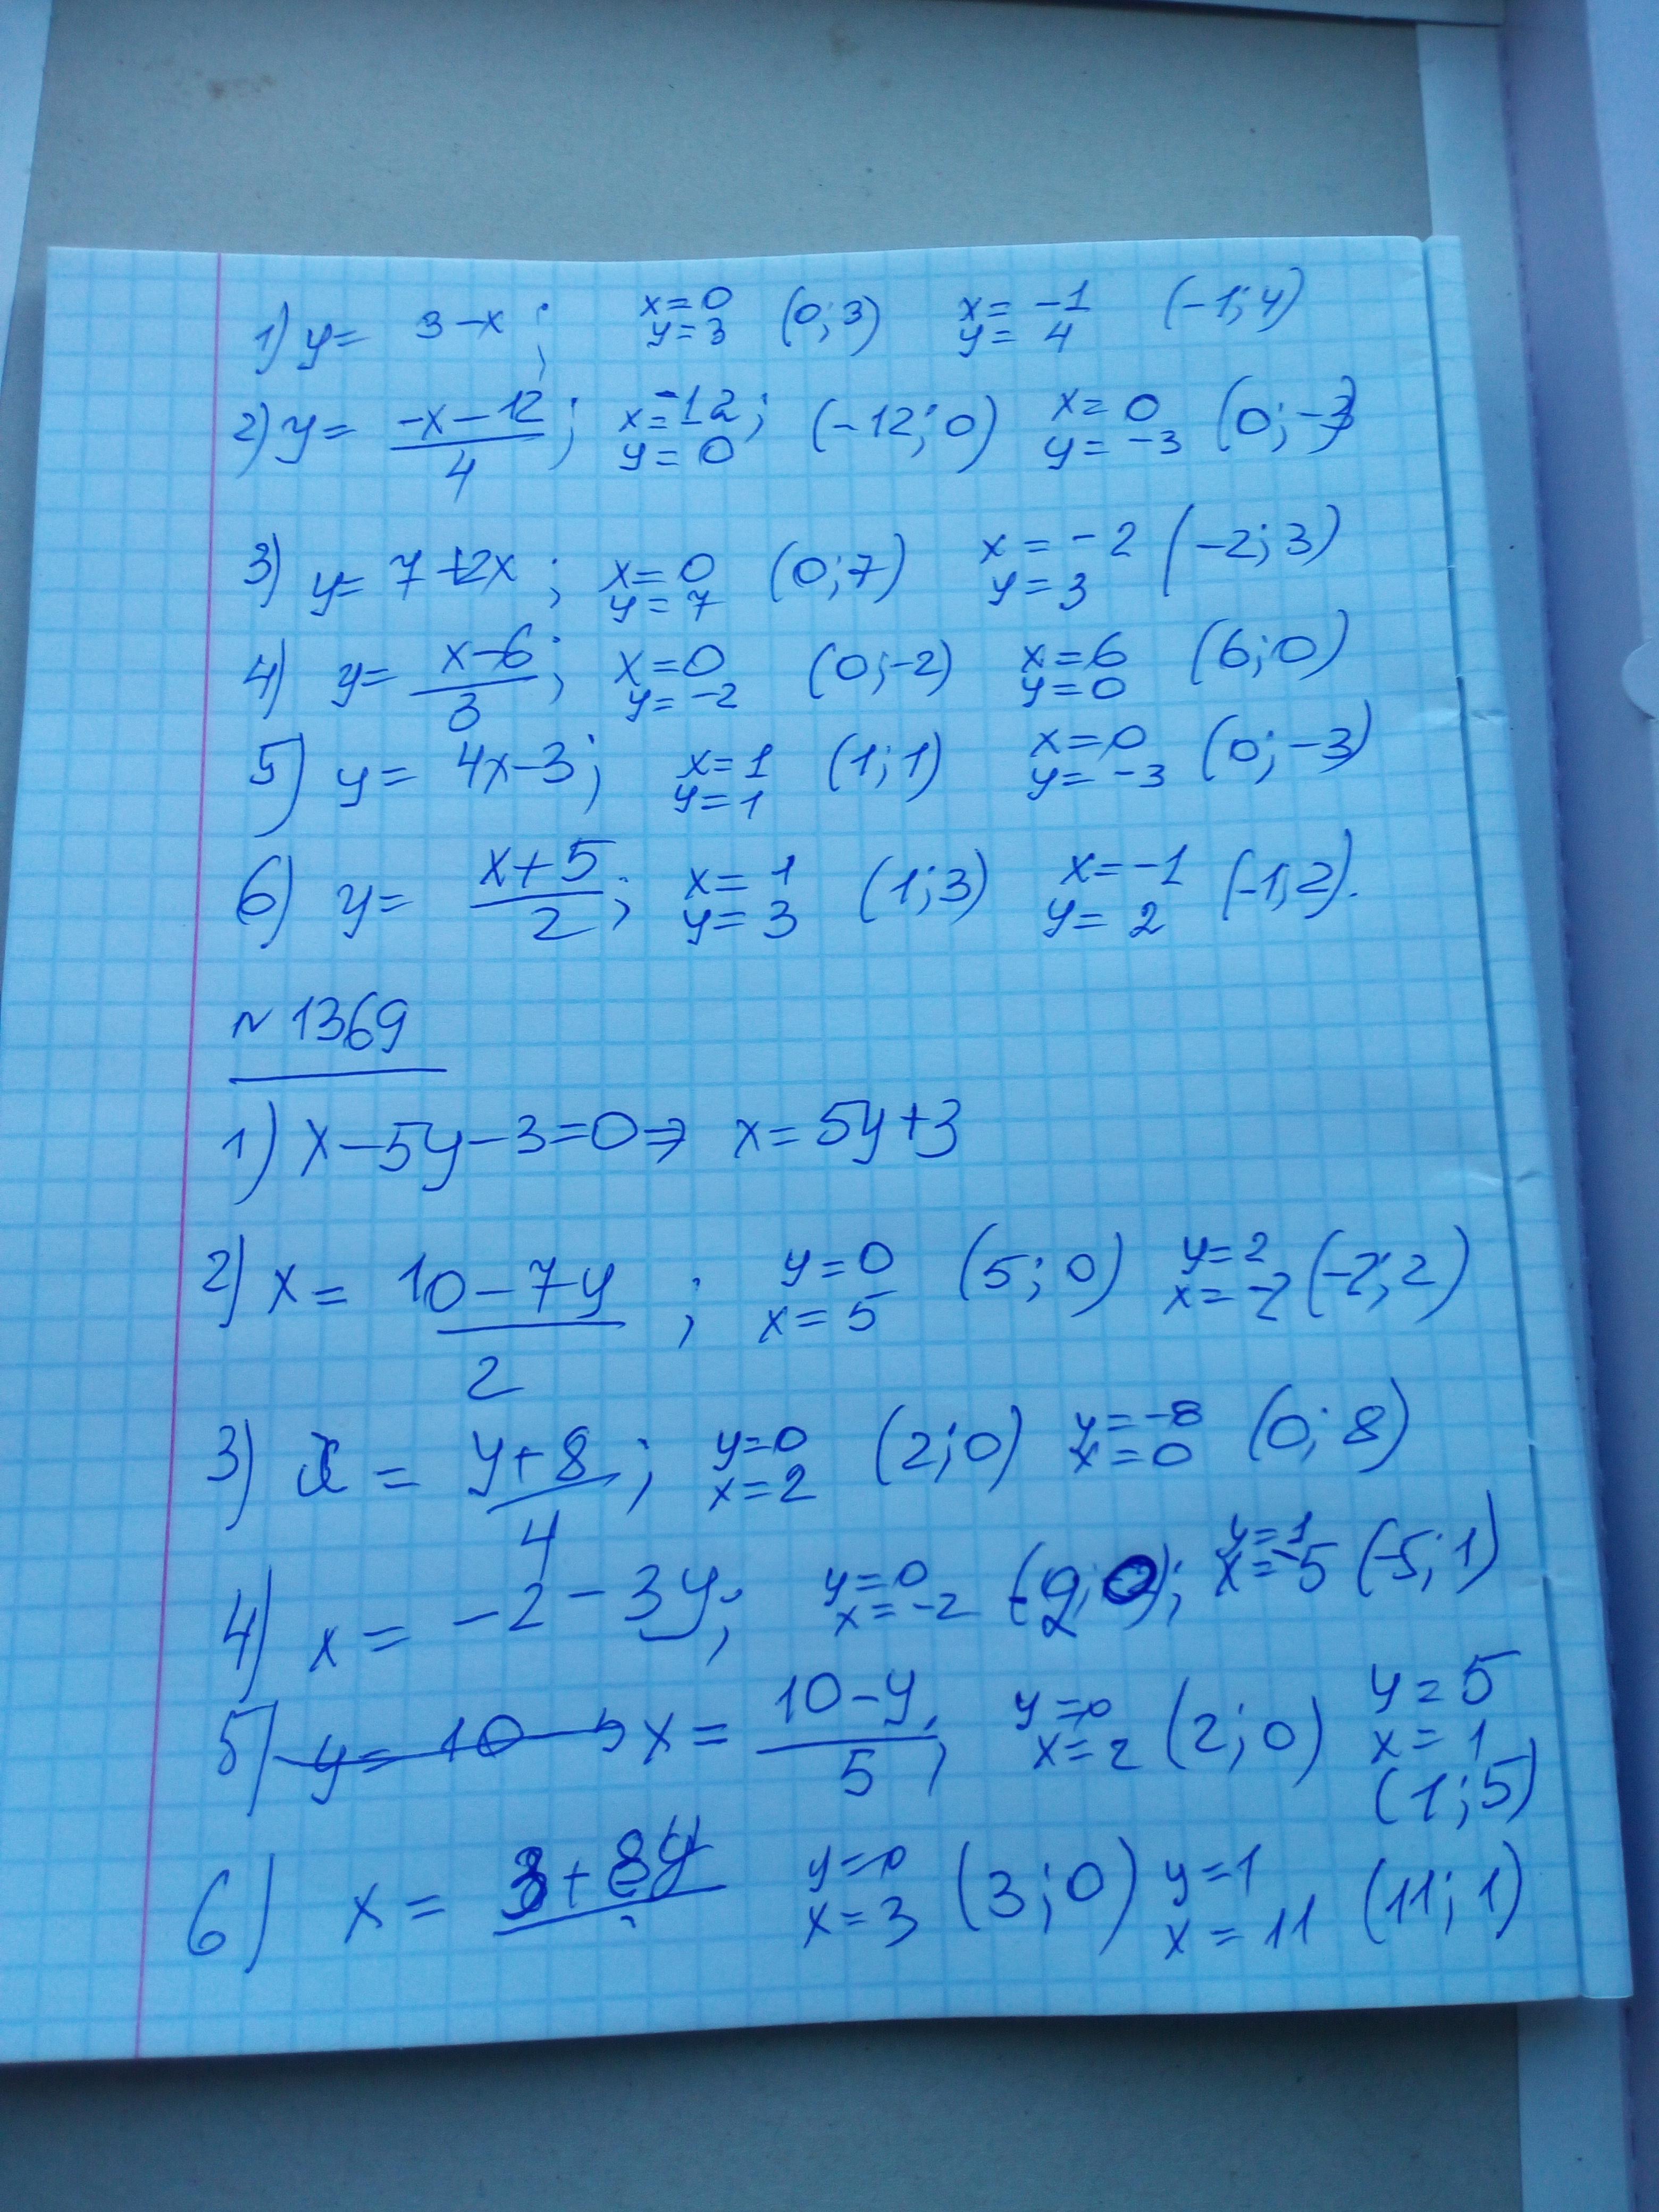 1) y = 3 - x ; x = 0 y = 3 (0; 3) x = -1 y = 4 (-1; 4)
2) y = (-x - 12)/4 ; x = -12; y = 0 (-12; 0) x = 0 y = -3 (0; -3)
3) y = 7 + 2x ; x = 0 y = 7 (0; 7) x = -2 y = 3 (-2; 3)
4) y = (x - 6)/3 ; x = 0 y = -2 (0; -2) x = 6 y = 0 (6; 0)
5) y = 4x - 3 ; x = 1 y = 1 (1; 1) x = 0 y = -3 (0; -3)
6) y = (x + 5)/2 ; x = 1 y = 3 (1; 3) x = -1 y = 2 (-1; 2).
N 1369
1) x - 5y - 3 = 0 ⇒ x = 5y + 3
2) x = (10 - 7y)/2 ; y = 0 x = 5 (5; 0) y = 2 x = -2 (-2; 2)
3) x = (y + 8)/4 ; y = 0 x = 2 (2; 0) y = -8 x = 0 (0; 8)
4) x = -2 - 3y ; y = 0 x = -2 (-2; 0); y = 1 x = -5 (-5; 1)
5) x = (10 - y)/5 ; y = 0 x = 2 (2; 0) y = 5 x = 1
(1; 5)
6) x = 3 + 8y y = 0 x = 3 (3; 0) y = 1 x = 11 (11; 1)